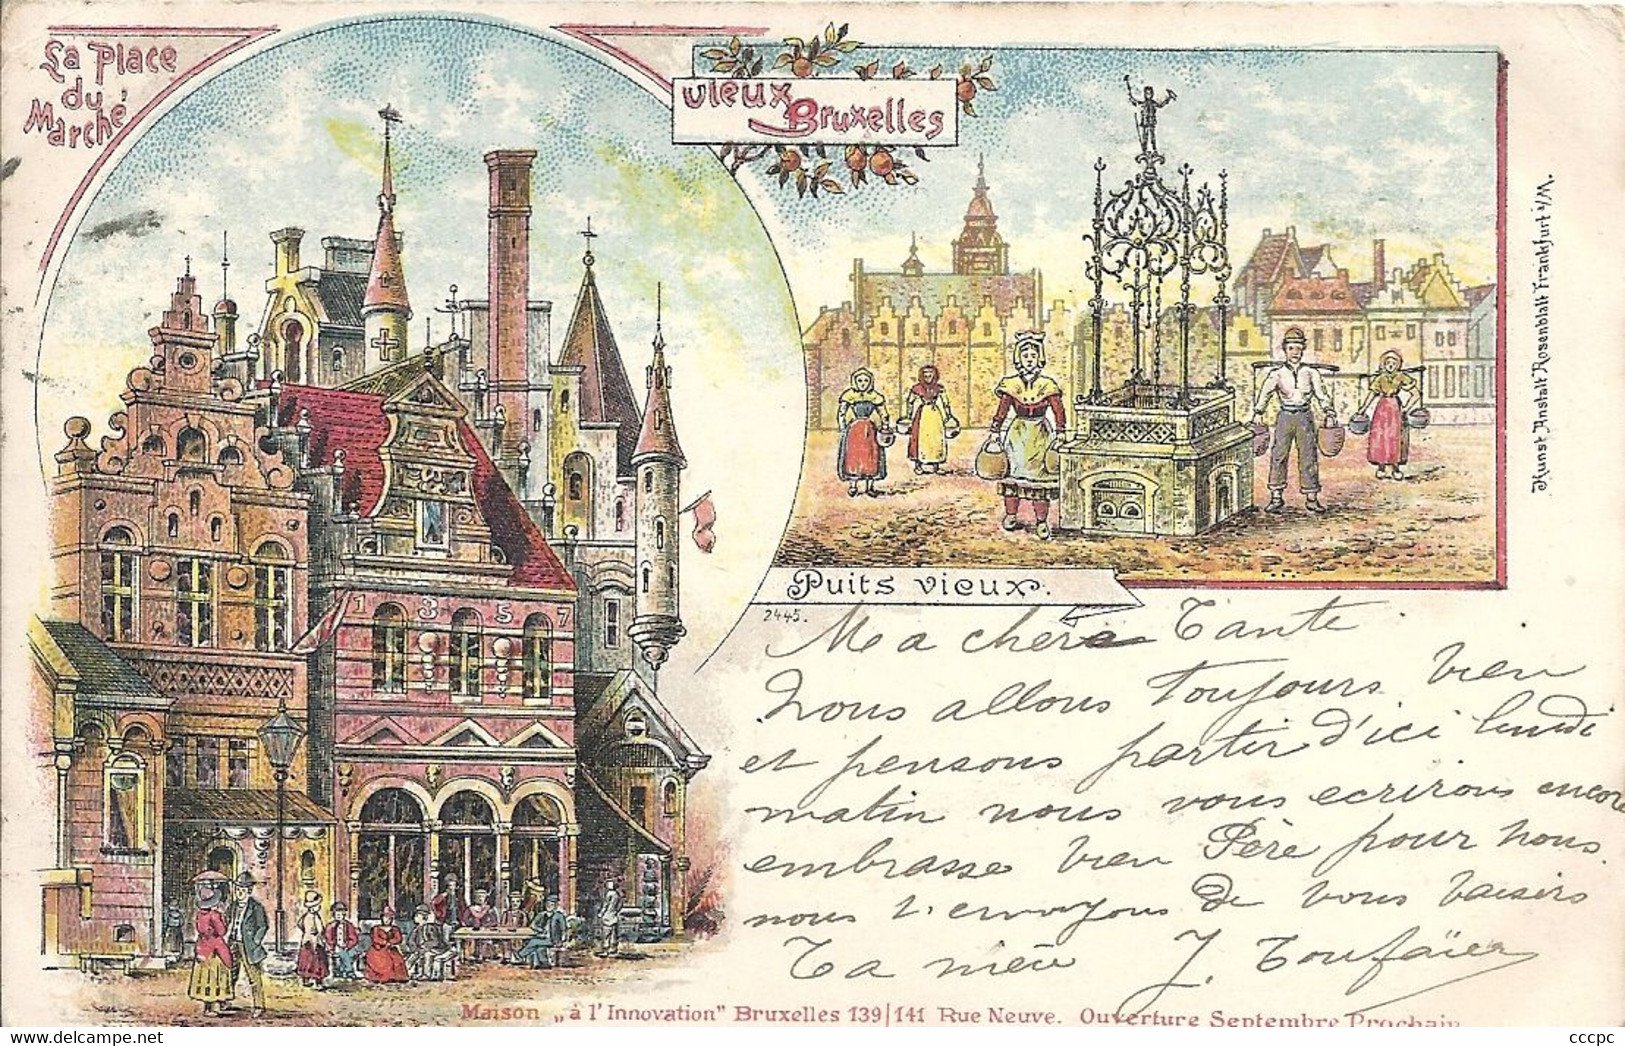 La Place
du
Marché
Vieux
Bruxelles
1 3 5 7
Puits Vieux.
2445.
Kunst Anstalt Rosenblatt Frankfurt a/M.
Ma chere Tante
Nous allons toujours bien
et pensons partir d'ici lundi
matin nous vous ecrirons encore
embrasse bien Père pour nous
nous t'envoyons de bons baisers
Ta nièce J.
Maison „à l'Innovation" Bruxelles 139/141 Rue Neuve. Ouverture Septembre Prochain
cccpc